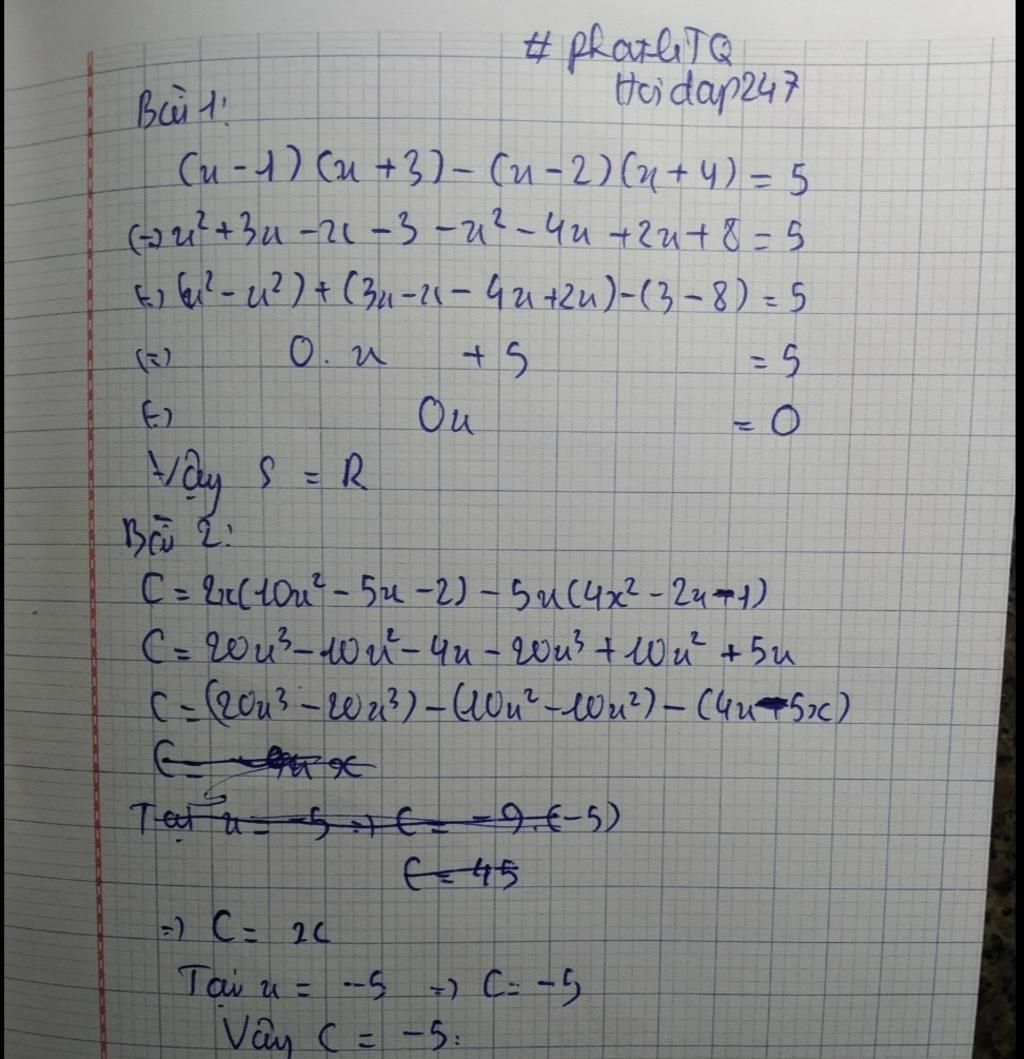 #phathTQ
Hoidap247
Bài 1:
(x-1)(x+3)-(x-2)(x+4)=5
(=) x²+3x-x-3-x²-4x+2x+8=5
(=) (x²-x²)+(3x-x-4x+2x)-(3-8)=5
(=) 0.x +5 =5
(=) 0x =0
Vậy S = R
Bài 2:
C=2x(10x²-5x-2)-5x(4x²-2x-1)
C=20x³-10x²-4x-20x³+10x²+5x
C=(20x³-20x³)-(10x²-10x²)-(4x-5x)
Tại x=-5 =) C=-9.(-5)
C=45
=) C= x
Tại x = -5 =) C=-5
Vậy C = -5.